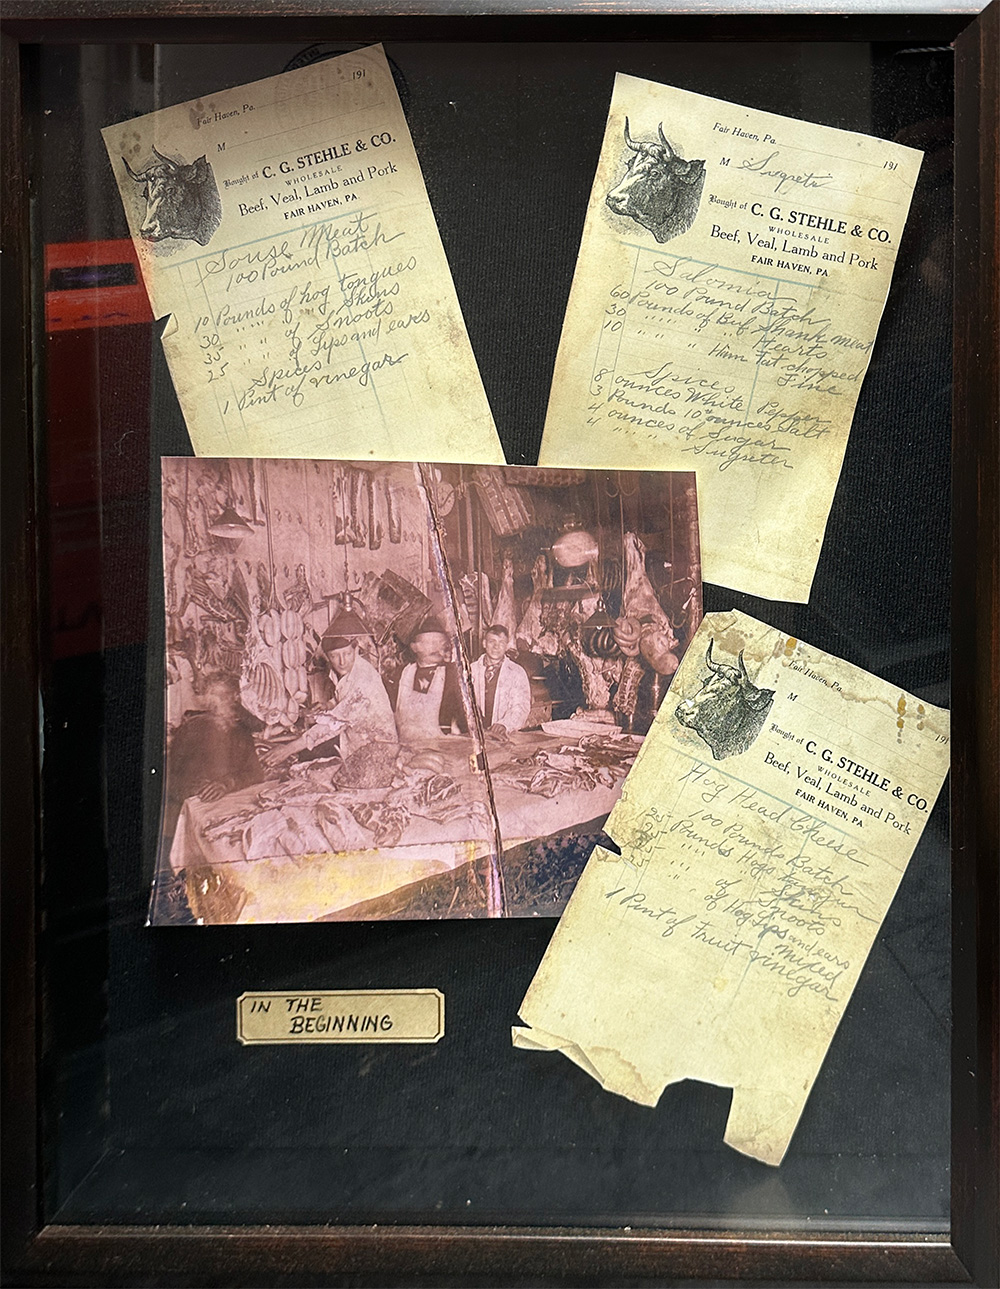 Fair Haven, Pa. 191
M
Bought of C. G. STEHLE & CO.
WHOLESALE
Beef, Veal, Lamb and Pork
FAIR HAVEN, PA
Souse Meat
100 Pound Batch
10 Pounds of hog tongues
30 " " " of Skins
35 " " " of Snoots
25 " " " of Lips and ears
Spices
1 Pint of vinegar
Fair Haven, Pa. 191
M
Bought of C. G. STEHLE & CO.
WHOLESALE
Beef, Veal, Lamb and Pork
FAIR HAVEN, PA
Salomia
100 Pound Batch
60 Pounds of Buf Shank meat
30 " " " Hearts
10 " " Fat chopped
Fine
Spices
8 ounces White Pepper
3 Pounds 10 ounces Salt
4 ounces of Sugar
4 " " "
Fair Haven, Pa. 191
M
Bought of C. G. STEHLE & CO.
WHOLESALE
Beef, Veal, Lamb and Pork
FAIR HAVEN, PA
Hog Head Cheese
100 Pounds Batch
25 Pounds Hogs
25 " " of Skins
25 " " of Snoots
25 " " of Hog Lips and ears
mixed
1 Pint of Fruit vinegar
IN THE
BEGINNING